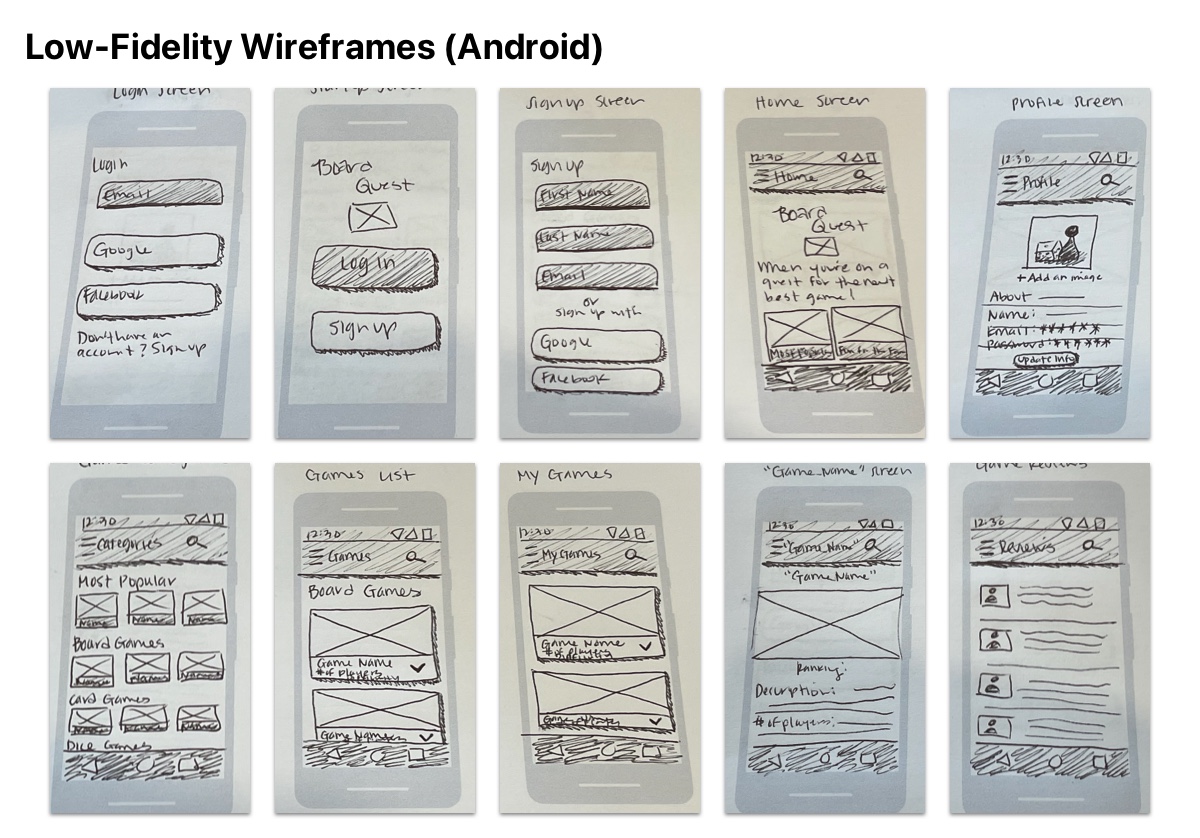 Low-Fidelity Wireframes (Android)
Login Screen
Login
Email
Google
Facebook
Don't have an
account? Sign up
Screen
Board
Quest
Log In
Sign up
Sign up Screen
Sign up
First Name
Last Name
Email
or
sign up with
Google
Facebook
Home Screen
12:30
Home
Board
Quest
When you're on a
quest for the next
best game!
Most Popular
Profile Screen
12:30
Profile
+ Add an image
About
Name:
Email: ******
Password: ******
Update Info
12:30
Categories
Most Popular
Name
Name
Name
Board Games
Name
Name
Name
Card Games
Name
Name
Name
Dice Games
Games List
12:30
Games
Board Games
Game Name
# of players
Game Name
My Games
12:30
My Games
Game Name
# of players
"Game_Name" Screen
12:30
"Game_Name"
"Game Name"
Ranking:
Description:
# of players:
Game Reviews
12:30
Reviews